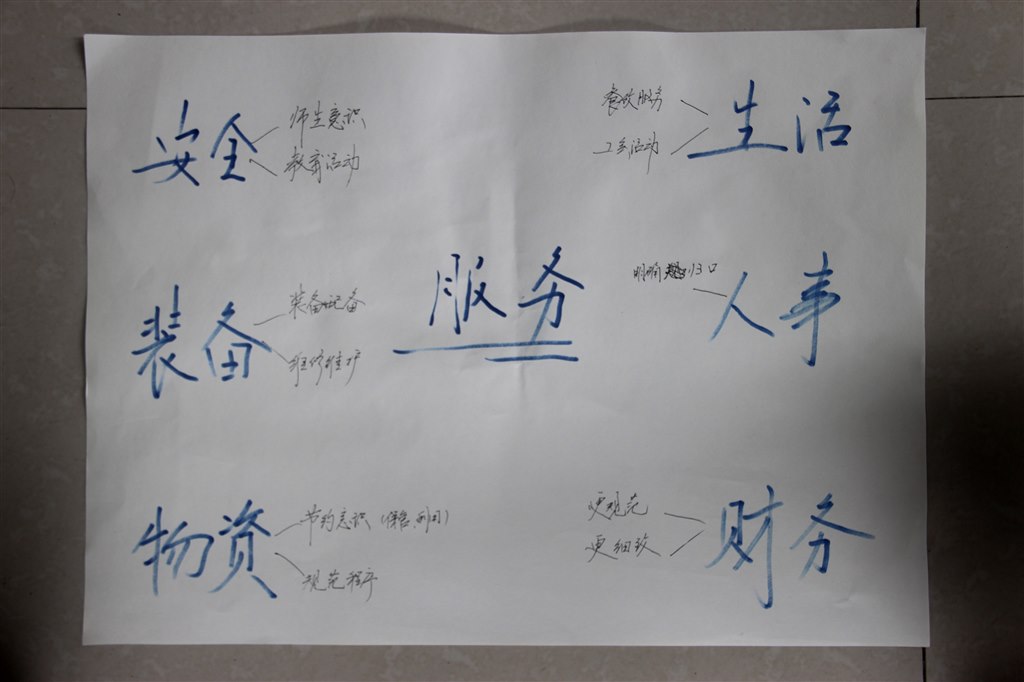 安全
师生意识
教育活动
餐饮服务
工会活动
生活
装备
装备设备
维修维护
服务
明确 归口
人事
物资
节约意识（保管、利用）
规范程序
更规范
更细致
财务